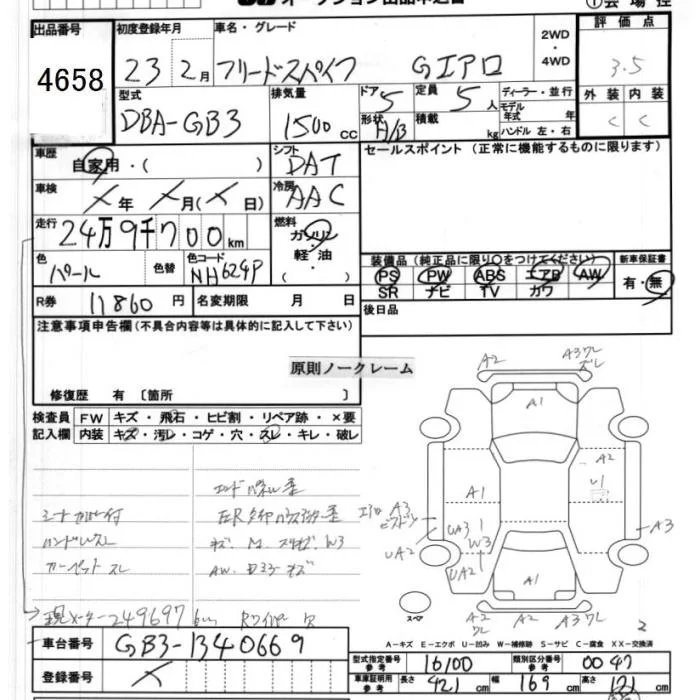 オークション出品申込書
出品番号 4658
初度登録年月 23 2月
車名・グレード フリードスパイク Gエアロ
2WD・4WD
評価点 3.5
型式 DBA-GB3
排気量 1500cc
ドア 5
形状 H/B
定員 5人
積載 kg
ディーラー・並行
モデル年式 年
ハンドル 左・右
外装 C 内装 C
車歴 自家用・( )
シフト DAT
セールスポイント (正常に機能するものに限ります)
車検 ×年 ×月(×日)
冷房 AAC
走行 24万9千700km
燃料 ガソリン・軽油・( )
色 パール 色替
色コード NH624P
装備品 (純正品に限り○をつけてください)
新車保証書 有・無
PS PW ABS エアB AW
SR ナビ TV カワ
R券 11860円
名変期限 月 日
後日品
注意事項申告欄 (不具合内容等は具体的に記入して下さい)
原則ノークレーム
修復歴 有 〔箇所 〕
検査員記入欄
FW キズ・飛石・ヒビ割・リペア跡・×要
内装 キズ・汚レ・コゲ・穴・スレ・キレ・破レ
シートカバー付
ハンドルスレ
カーペットスレ
キズ. M. W3
AW. キズ
現メーター249697km Rワイパー欠
A2
A3ワレ
ズレ
A1
A2
U1
A1
A3
UA3
W3
UA2
UA2
A3
A1
A2
ワレ
A2
A3ワレ
スペア
2
A-キズ E-エクボ U-凹み W-補修跡 S-サビ C-腐食 XX-交換済
車台番号 GB3-1340669
登録番号 ×
型式指定番号 参考 16100
類別区分番号 参考 0047
車庫証明用 参考 長さ 421cm 幅 169cm 高さ 171cm